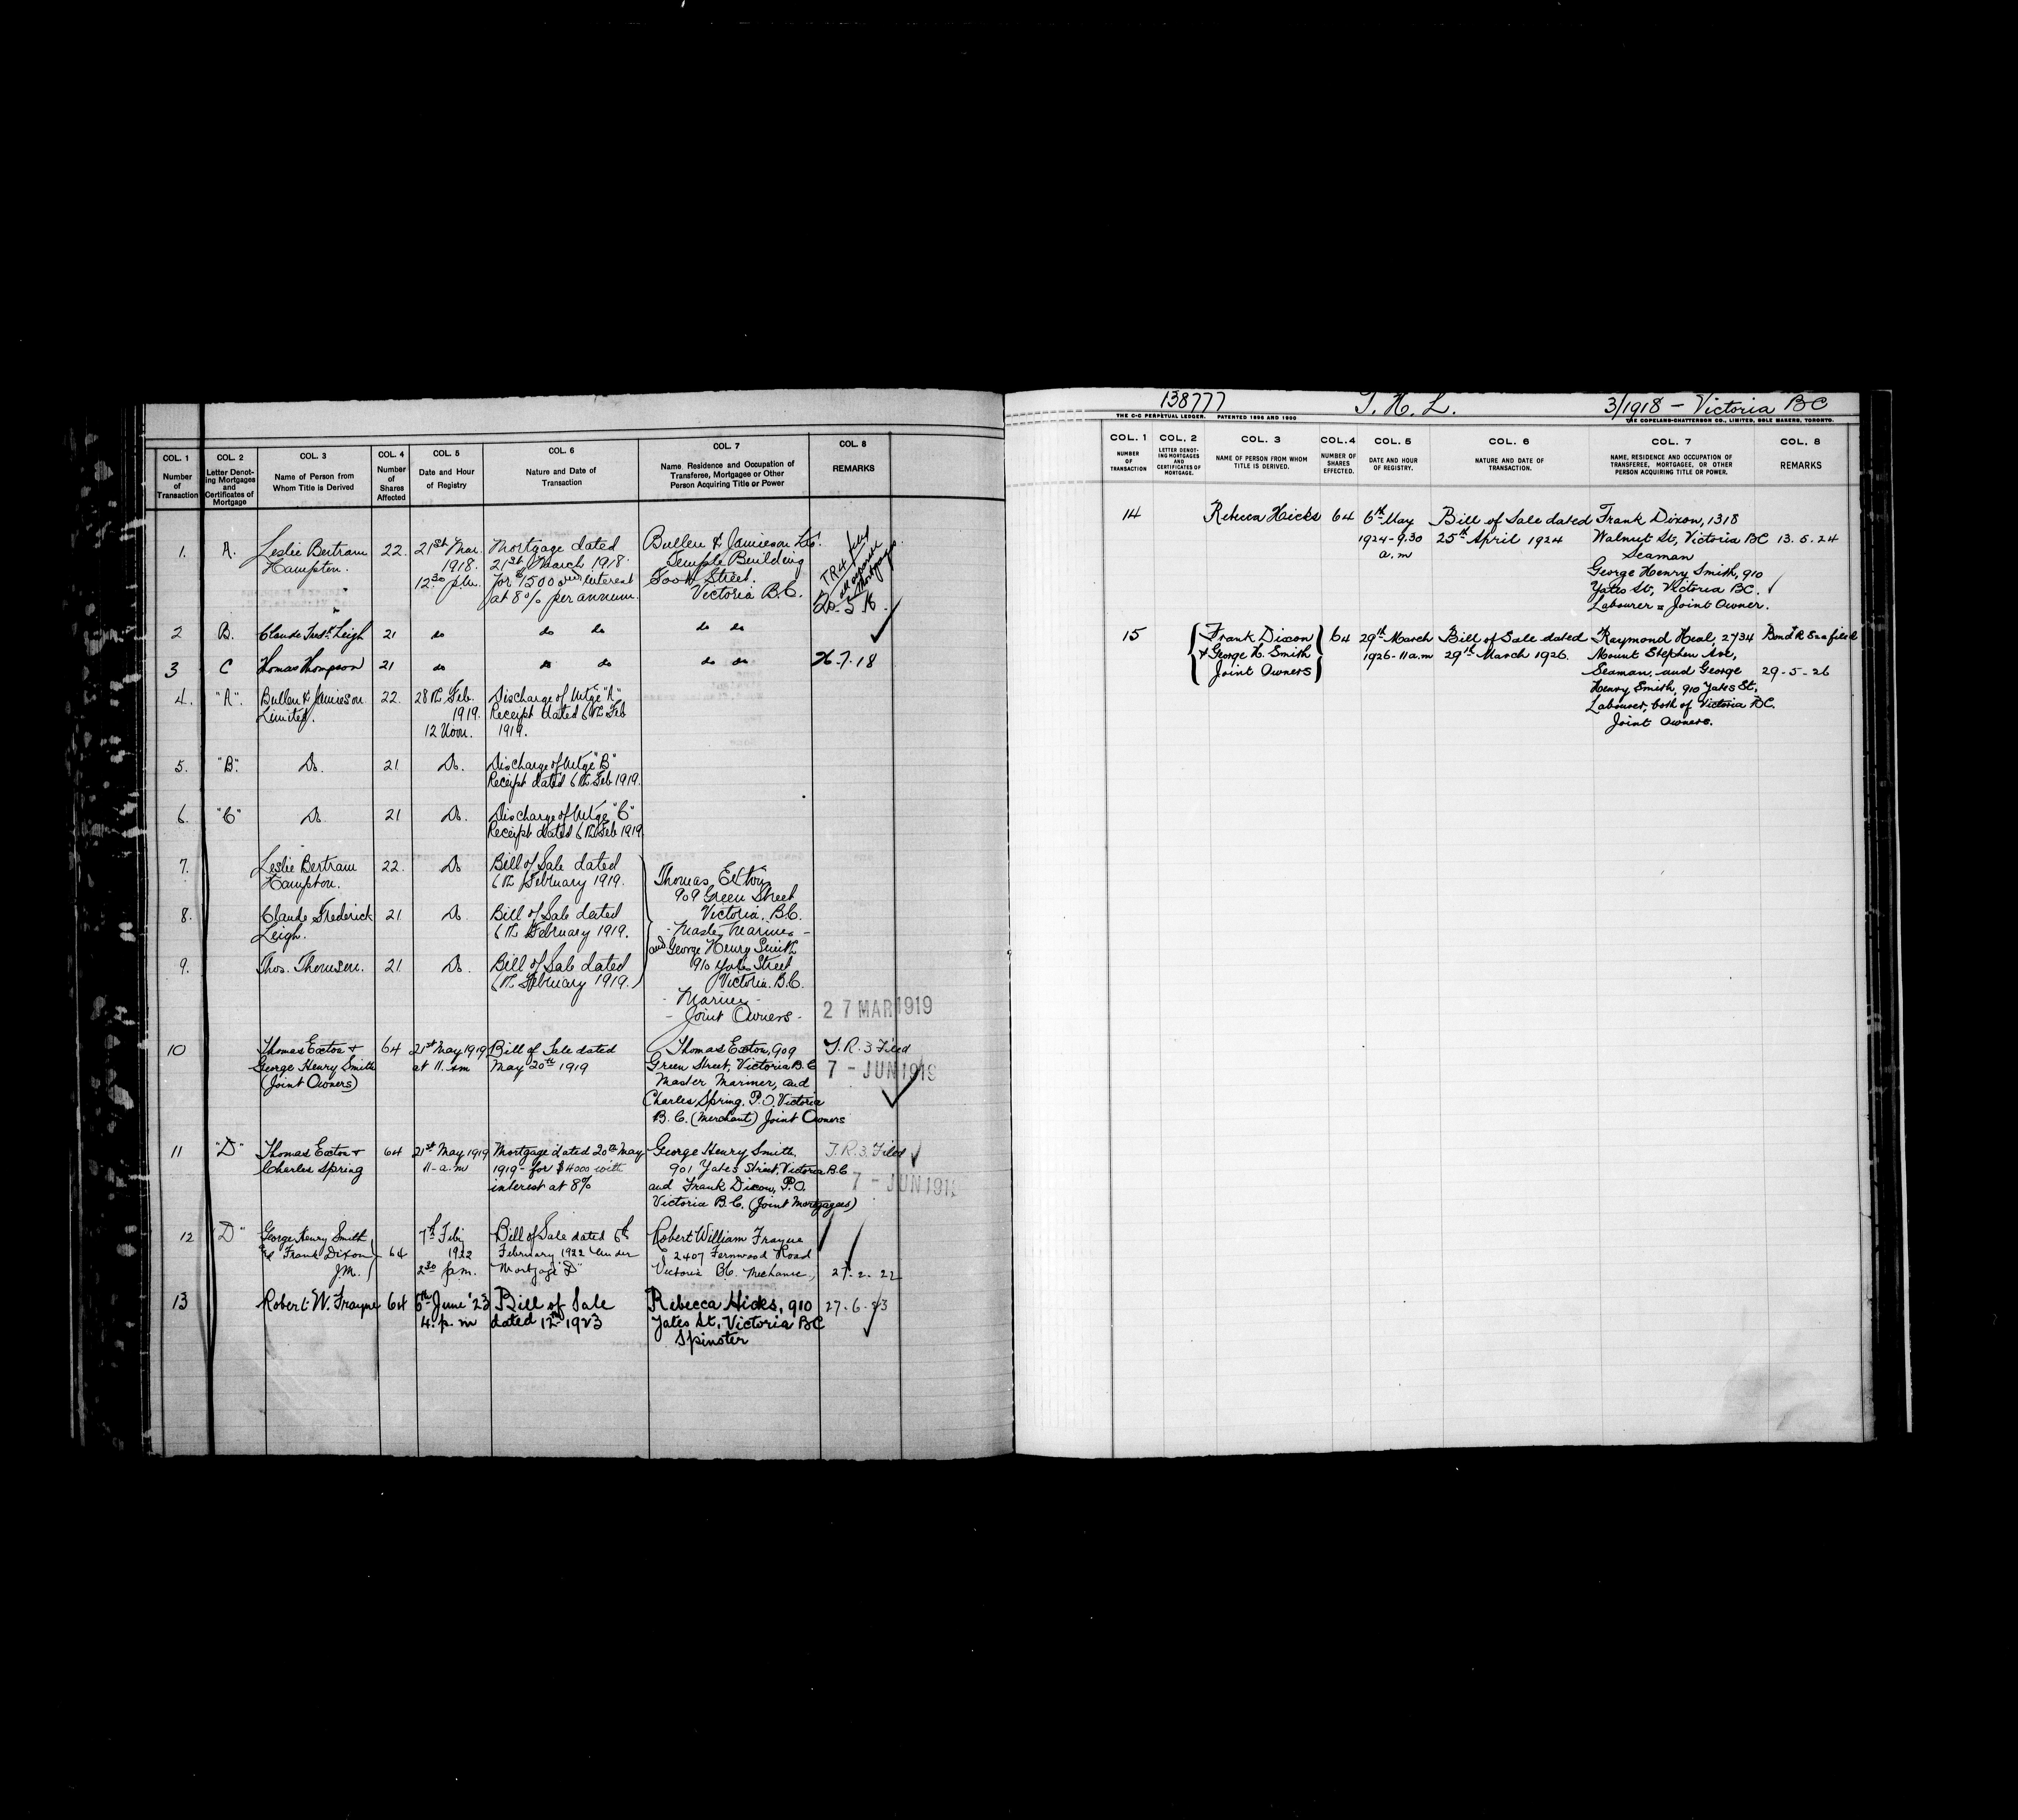 COL. 1
Number
of
Transaction
COL. 2
Letter Denot-
ing Mortgages
and
Certificates of
Mortgage
COL. 3
Name of Person from
Whom Title is Derived
COL. 4
Number
of
Shares
Affected
COL. 5
Date and Hour
of Registry
COL. 6
Nature and Date of
Transaction
COL. 7
Name, Residence and Occupation of
Transferee, Mortgagee or Other
Person Acquiring Title or Power
COL. 8
REMARKS
1. A. Leslie Bertram 22. 21st Mar. Mortgage dated Bullen & Jamieson
Hampton. 1918. 21st March 1918. Temple Building
12 30 p.m. for $1500 interest Street.
at 8% per annum. Victoria B.C.
TR4
Mortgages
2 B. Claude Leigh 21 do do do do do
3 C Thomas Thompson 21 do do do do do 26-7-18
4. "A". Bullen & Jamieson 22. 28th Feb. Discharge of Mtge "A"
Limited. 1919. Receipt dated 6th Feb
12 Noon. 1919.
5. "B". Do. 21 Do. Discharge of Mtge "B"
Receipt dated 6th Feb 1919.
6. "C" Do 21 Do. Discharge of Mtge "C"
Receipt dated 6th Feb 1919
7. Leslie Bertram 22. Do Bill of Sale dated
Hampton. 6th February 1919.
8. Claude Frederick 21 Do. Bill of Sale dated
Leigh. 6th February 1919.
9. Thos. Thomson. 21 Do. Bill of Sale dated
6th February 1919.
Thomas Exton
909 Green Street
Victoria. B.C.
- Master Mariner -
and George Henry Smith
910 Yates Street
Victoria. B.C.
- Mariner -
- Joint Owners -
27 MAR 1919
10 Thomas Exton & 64 21st May 1919 Bill of Sale dated Thomas Exton, 909 T.R. 3 Filed
George Henry Smith at 11. am May 20th 1919 Green Street, Victoria B.C 7 - JUN 1919
(Joint Owners) Master Mariner, and
Charles Spring, P.O. Victoria
B.C. (Merchant) Joint Owners
11 "D" Thomas Exton & 64 21st May 1919 Mortgage dated 20th May George Henry Smith T.R. 3. Filed
Charles Spring 11-a.m 1919 - for $4000 with 901 Yates Street, Victoria B.C
interest at 8% and Frank Dixon, P.O. 7 - JUN 191
Victoria B.C. (Joint Mortgagees)
12 "D" George Henry Smith 7th Feby Bill of Sale dated 6th Robert William Frayne
& Frank Dixon 64 1922 February 1922 under 2407 Fernwood Road
J.M. 2 30 p.m. Mortgage "D" Victoria B.C. Mechanic. 27-2-22
13 Robert W. Frayne 64 6th June '23 Bill of Sale Rebecca Hicks, 910 27-6-23
4. p.m dated 12th 1923 Yates St, Victoria BC
Spinster
138777 T. H. L. 3/1918 - Victoria BC
THE C-C PERPETUAL LEDGER. PATENTED 1896 AND 1900
THE COPELAND-CHATTERSON CO., LIMITED, SOLE MAKERS, TORONTO.
COL. 1
NUMBER
OF
TRANSACTION
COL. 2
LETTER DENOT-
ING MORTGAGES
AND
CERTIFICATES OF
MORTGAGE.
COL. 3
NAME OF PERSON FROM WHOM
TITLE IS DERIVED.
COL. 4
NUMBER OF
SHARES
EFFECTED.
COL. 5
DATE AND HOUR
OF REGISTRY.
COL. 6
NATURE AND DATE OF
TRANSACTION.
COL. 7
NAME, RESIDENCE AND OCCUPATION OF
TRANSFEREE, MORTGAGEE, OR OTHER
PERSON ACQUIRING TITLE OR POWER.
COL. 8
REMARKS
14 Rebecca Hicks 64 6th May Bill of Sale dated Frank Dixon, 1318
1924-9.30 25th April 1924 Walnut St, Victoria BC 13. 5. 24
a.m Seaman
George Henry Smith, 910
Yates St, Victoria BC.
Labourer = Joint Owner.
15 Frank Dixon 64 29th March Bill of Sale dated Raymond Heal, 2734
& George H. Smith 1926-11 a.m 29th March 1926. Mount Stephen Ave,
Joint Owners Seaman, and George 29-5-26
Henry Smith, 910 Yates St.
Labourer, both of Victoria BC.
Joint Owners.